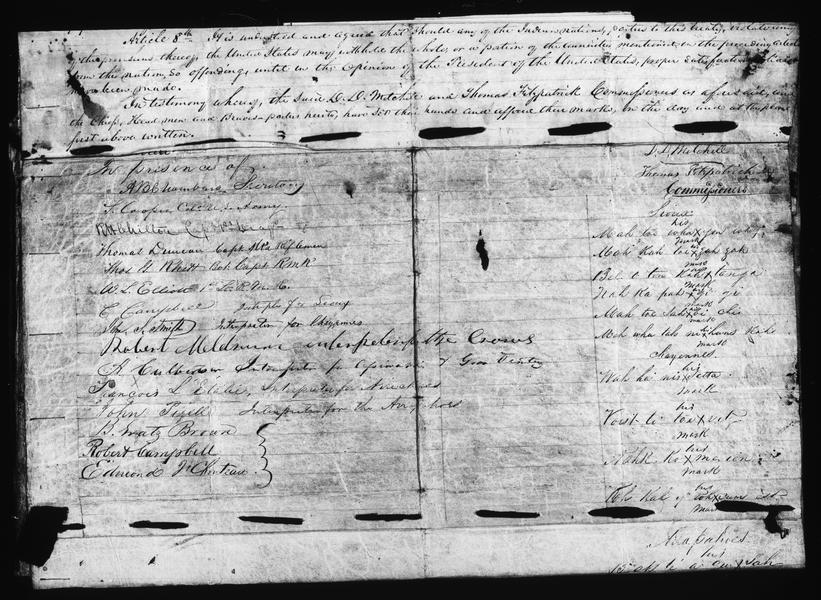 Article 8th. It is understood and agreed that should any of the Indian nations, parties to this treaty, violate any
of the provisions thereof, the United States may withhold the whole or a portion of the annuities mentioned in the preceding article
from the nation so offending, until in the opinion of the President of the United States, proper satisfaction shall
have been made.
In testimony whereof, the said D. D. Mitchell and Thomas Fitzpatrick Commissioners as aforesaid, and
the Chiefs, Head men and Braves parties hereto, have set their hands and affixed their marks, on the day and at the place
first above written.
In presence of
A. B. Chambers Secretary
S. Cooper Col. U. S. Army
R. H. Chilton Capt
Thomas Duncan Capt M. Riflemen
Thos G. Rhett Bvt Capt R M R
W. L. Elliott 1st Lt R. M. R.
C Campbell Interpt for Sioux
Jno. S. Smith Interpreter for Cheyennes
Robert Meldrum interpeter for the Crows
H. Culbertson Interpreter for Assiniboin & Gros Ventres
Francois L'Etalie, Interpreter for
John Pizelle Interpreter for the
B. Gratz Brown
Robert Campbell
Edmond F Chouteau
D. D. Mitchell
Thomas Fitzpatrick
Commissioners
Sioux
his
Mah toe wha x you whey
mark
his
Mah kah toe x zah zah
mark
his
Bel o ton kah x tanga
mark
his
Nah ka pah x gi gi
mark
his
Mah toe sah x bi chis
mark
his
Meh wha tah ni x hans kah
mark
Cheyennes
his
Wah ha nis x satta
mark
his
Voist ti toe x vetz
mark
his
Nahk ko x me ien
mark
his
Koh kah y wh x cum est
mark
Arapahoes
his